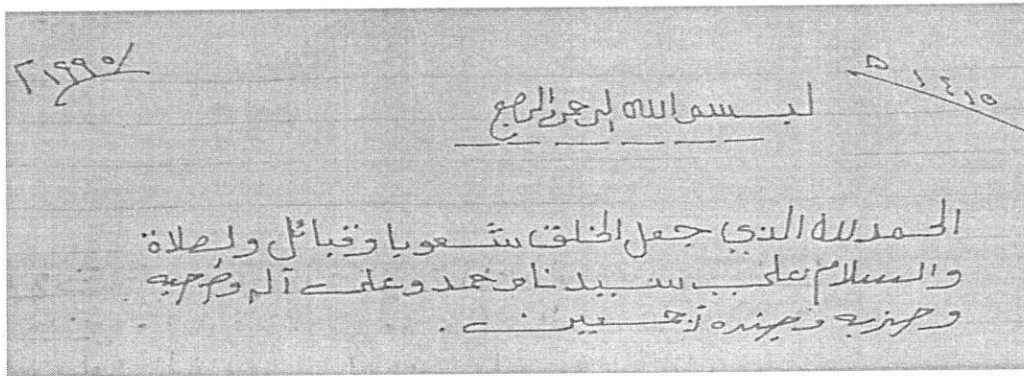 ١٤١٥ ه
١٩٩٥ م
بسم الله الرحمن الرحيم
الحمد لله الذي جعل الخلق شعوبا وقبائل والصلاة
والسلام على سيدنا محمد وعلى آله وصحبه
وحزبه وجنده أجمعين.